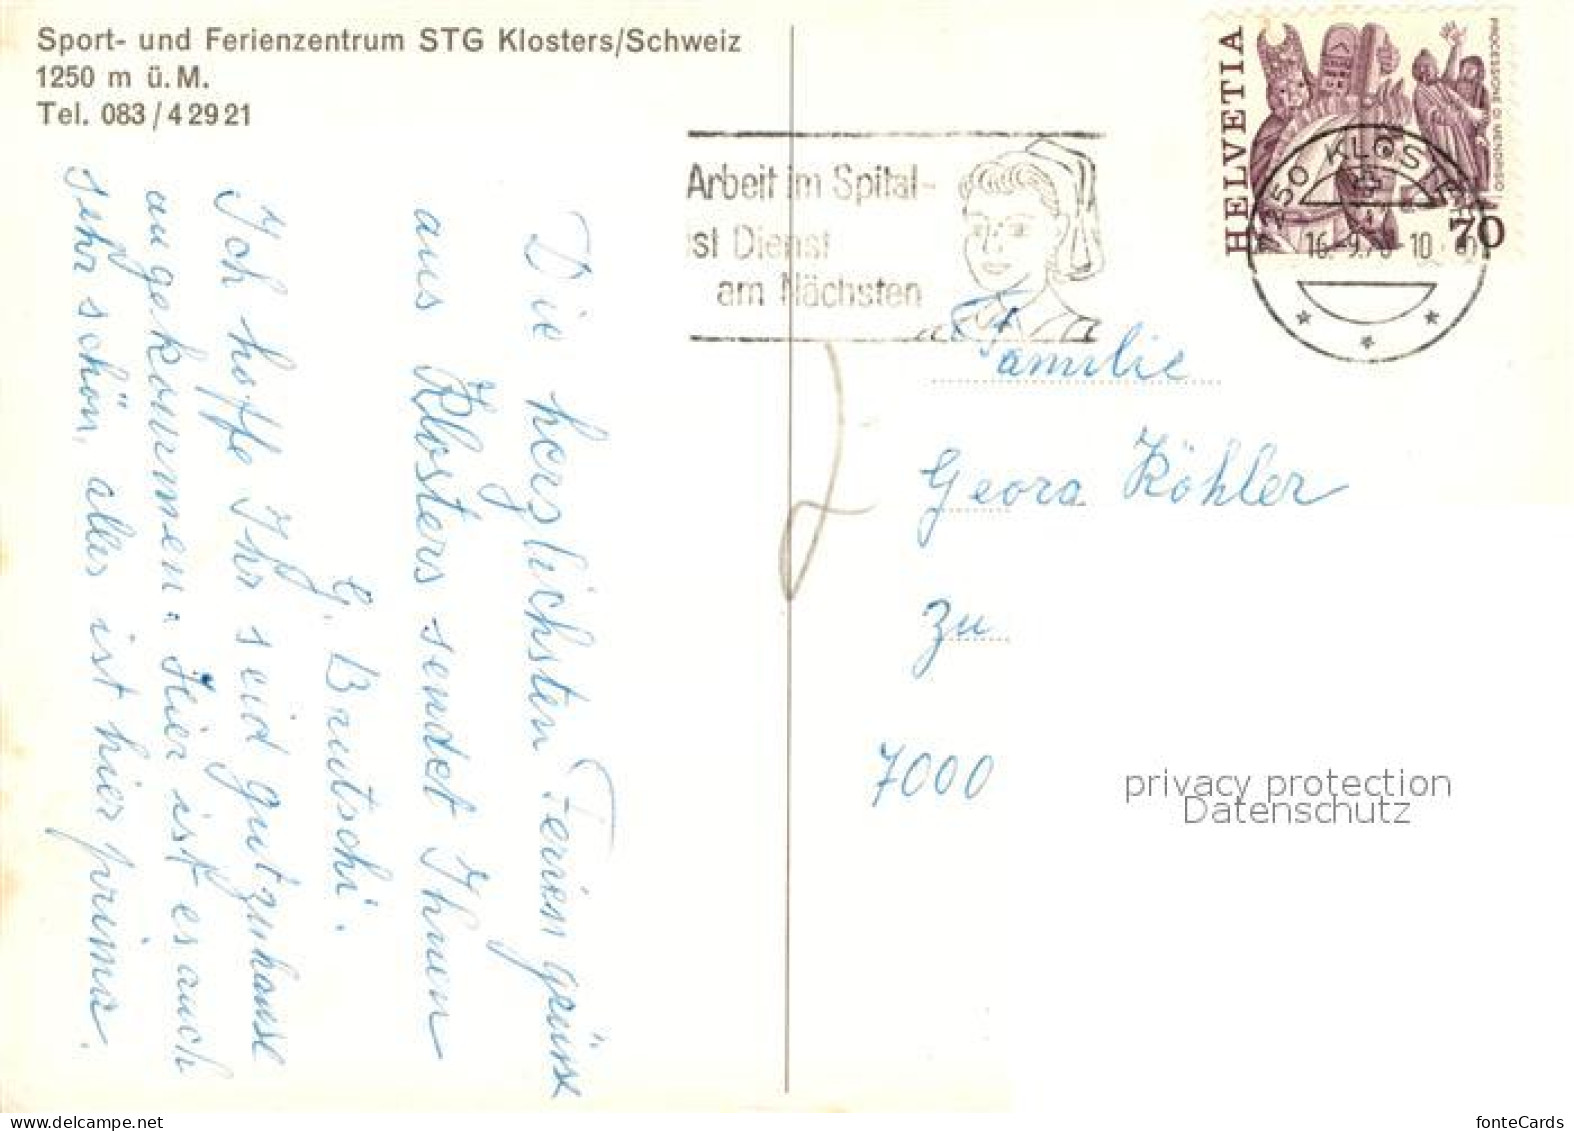 Sport- und Ferienzentrum STG Klosters/Schweiz
1250 m ü. M.
Tel. 083 / 4 29 21
Die herzlichsten Feriengrüsse
aus Klosters sendet Ihnen
G. Brutschi.
Ich hoffe Ihr seid gut zuhause
angekommen. Hier ist es auch
sehr schön, alles ist hier prima.
Arbeit im Spital-
ist Dienst
am Nächsten
HELVETIA
PROCESSIONE DI MENDRISIO
70
7250 KLOSTERS
16.-9.7 -10
Familie
Georg Köhler
Zu
7000
privacy protection
Datenschutz
fonteCards